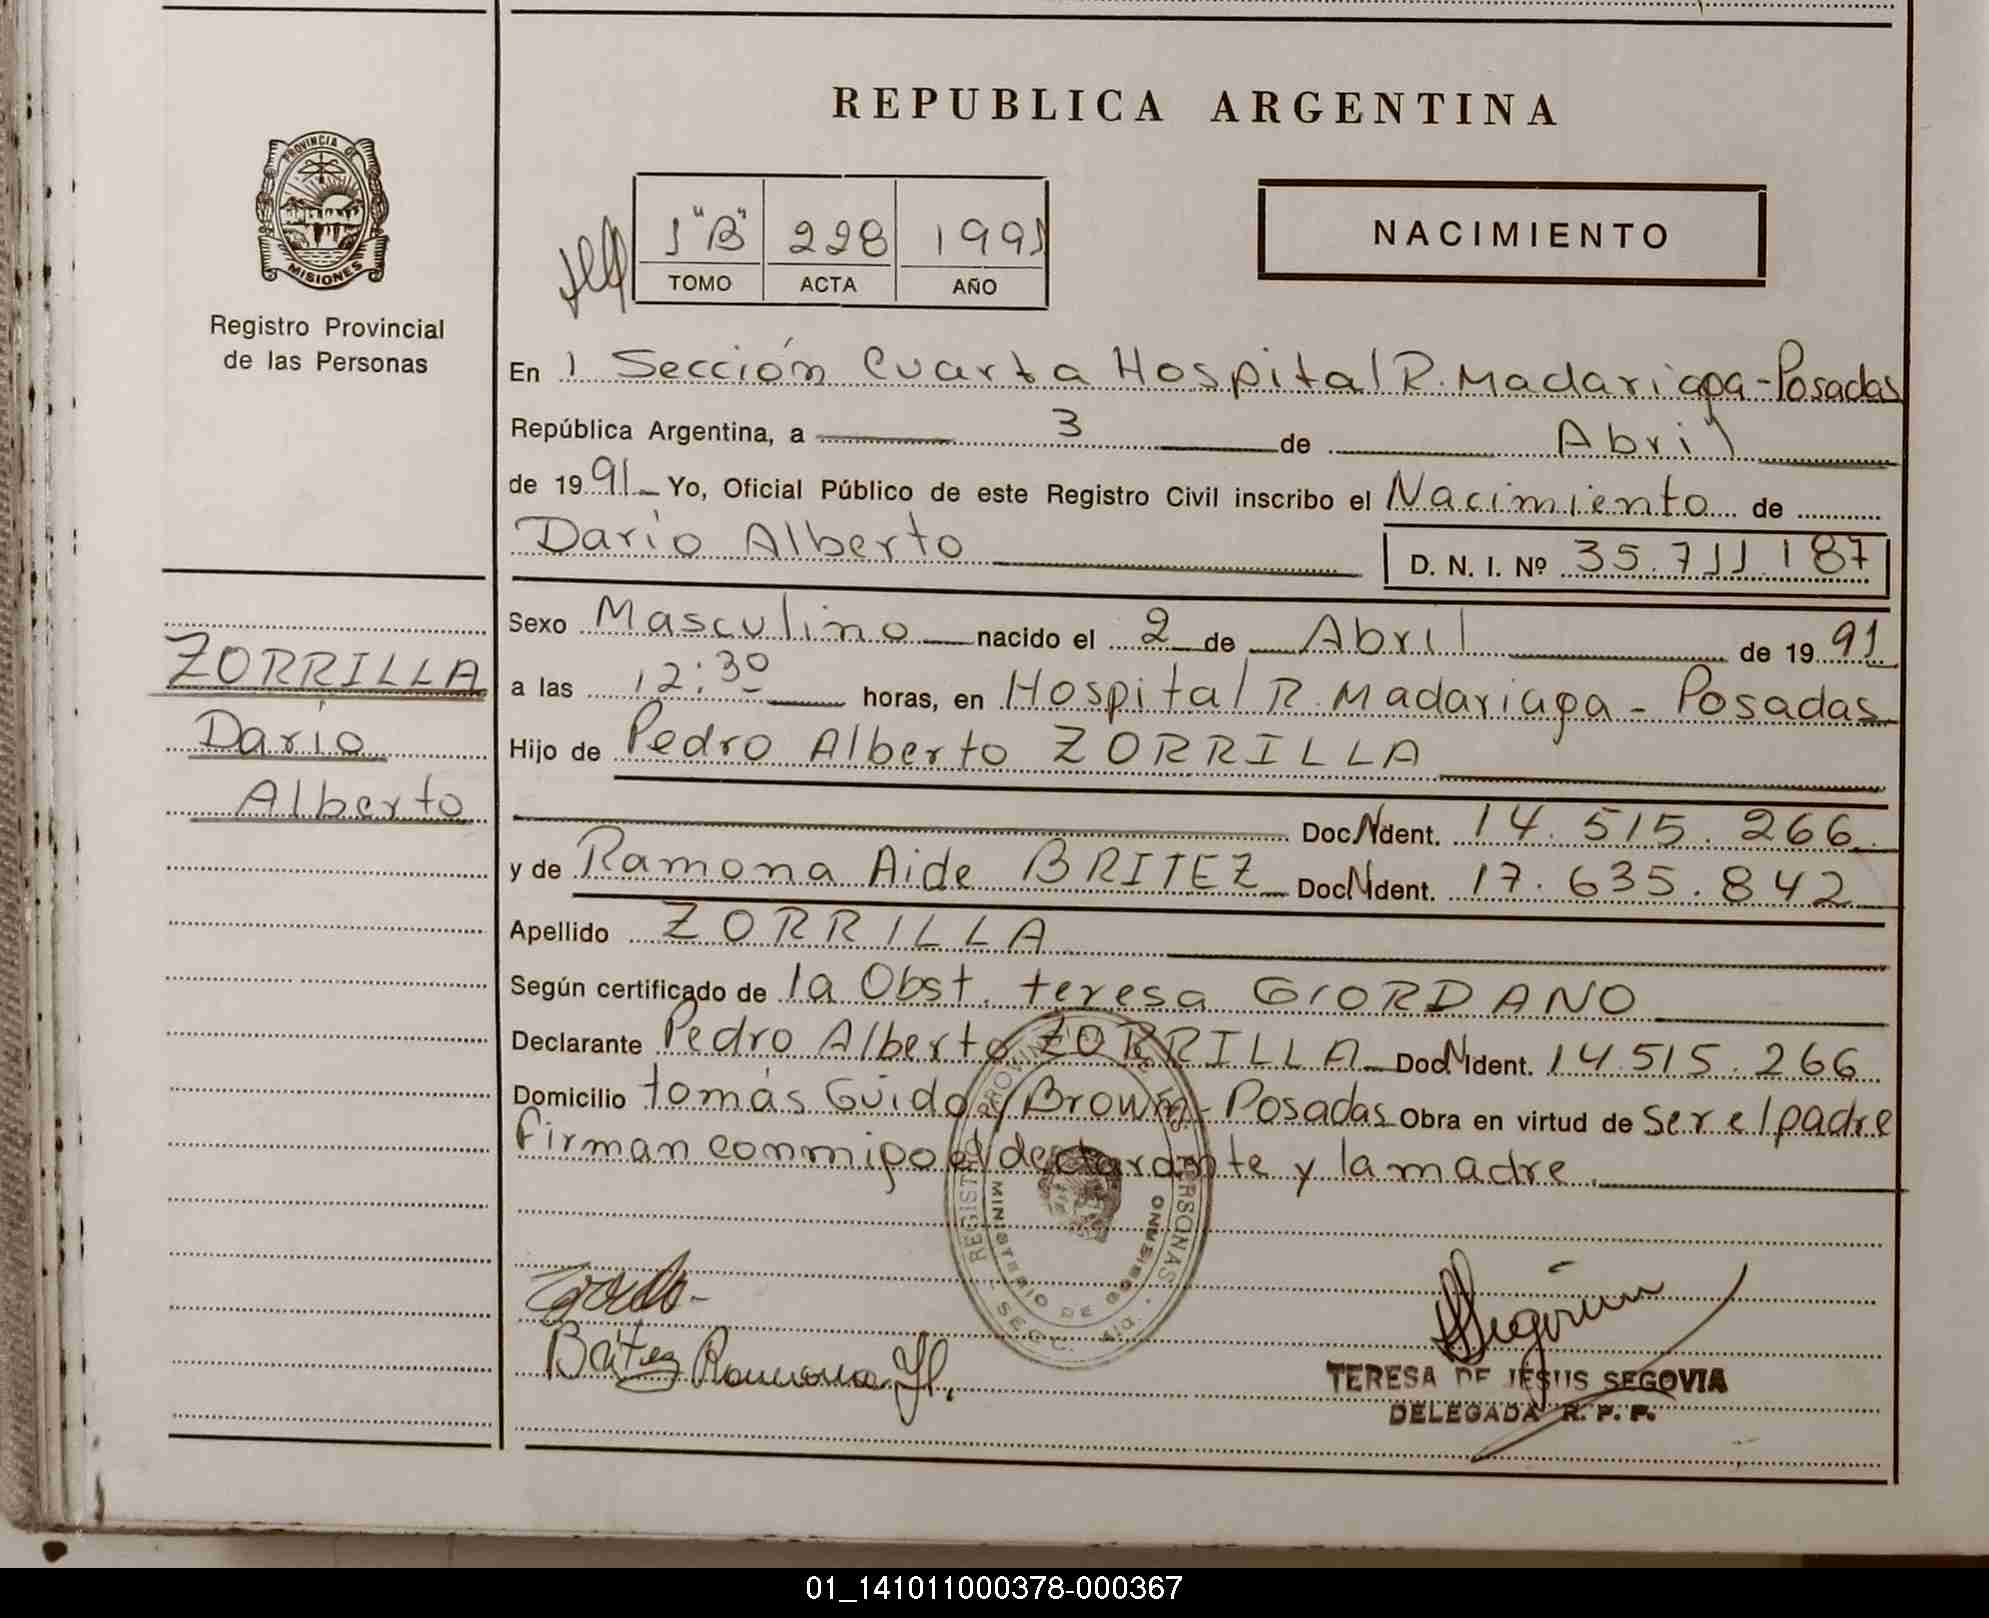 REPUBLICA ARGENTINA
PROVINCIA DE
MISIONES
Registro Provincial
de las Personas
1 "B" 228 1991
TOMO ACTA AÑO
NACIMIENTO
En 1 Sección Cuarta Hospital R. Madariaga - Posadas
República Argentina, a 3 de Abril
de 1991 Yo, Oficial Público de este Registro Civil inscribo el Nacimiento de
Darío Alberto D. N. I. Nº 35.711.187
ZORRILLA
Darío
Alberto
Sexo Masculino nacido el 2 de Abril de 1991
a las 12:30 horas, en Hospital R. Madariaga - Posadas
Hijo de Pedro Alberto ZORRILLA
Doc. N Ident. 14.515.266
y de Ramona Aide BRITEZ Doc. N Ident. 17.635.842
Apellido ZORRILLA
Según certificado de la Obst. teresa GIORDANO
Declarante Pedro Alberto ZORRILLA Doc. N Ident. 14.515.266
Domicilio tomás Guido y Brown - Posadas Obra en virtud de ser el padre
Firman conmigo el declarante y la madre.
MINISTERIO DE GOBIERNO
SECC. 4ta.
Britez Ramona
TERESA DE JESUS SEGOVIA
DELEGADA R. P. P.
01_141011000378-000367